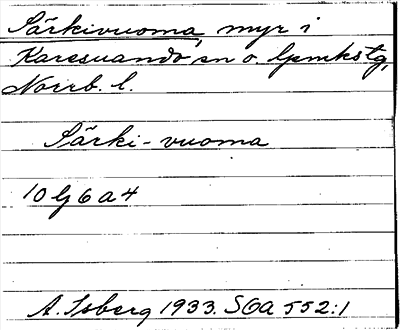 Särkivuoma, myr i
Karesuando sn o. lpmkstg,
Norrb. l.
Särki-vuoma
10 lj 6 a 4
A. Isberg 1933. SOa 552:1